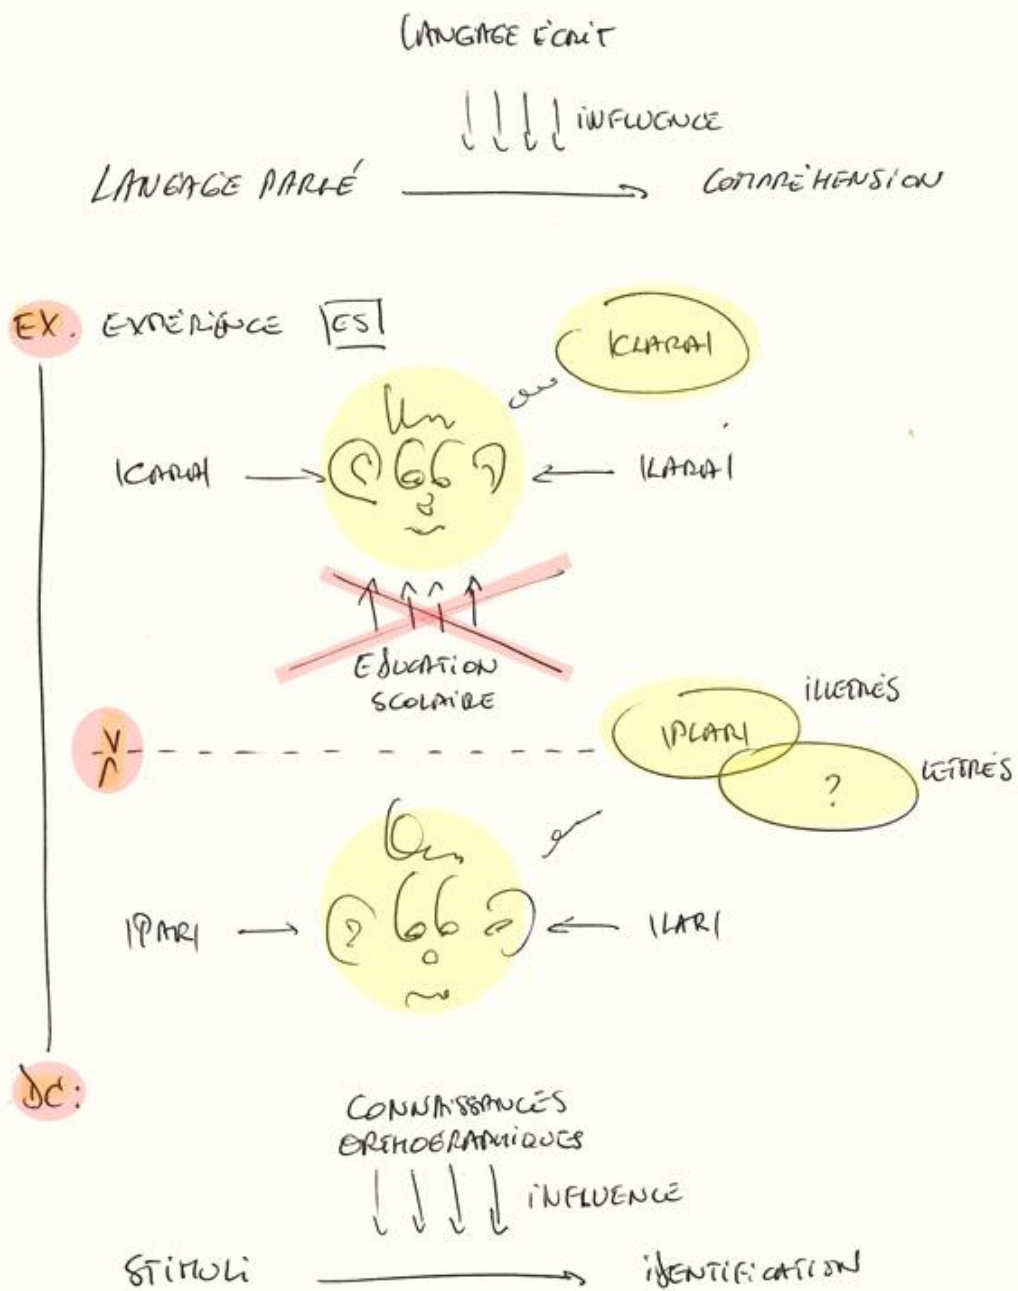 LANGAGE ÉCRIT
INFLUENCE
LANGAGE PARLÉ COMPRÉHENSION
EX. EXPÉRIENCE ES
|CLARA|
|CARA| |LARA|
EDUCATION
SCOLAIRE
ILLETTRÉS
|PLAR|
LETTRÉS
?
|PAR| |LAR|
DC:
CONNAISSANCES
ORTHOGRAPHIQUES
INFLUENCE
STIMULI IDENTIFICATION